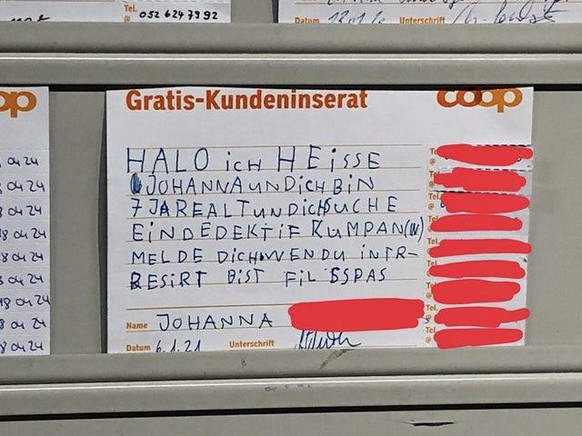 Tel.
052 624 79 92
Datum
Unterschrift
op
Gratis-Kundeninserat
coop
HALO iCH HEiSSE
JOHANNA UNDiCH BiN
7 JAREALT UNDiCHSUCHE
EiNDEDEKTiF KUMPAN(iN)
MELDE DiCH WENDU iNTR-
RESiRT BiST FiL SSPAS
Name JOHANNA
Datum 6.1.21 Unterschrift
04 24
04 24
04 24
04 24
04 24
04 24
04 24
04 24